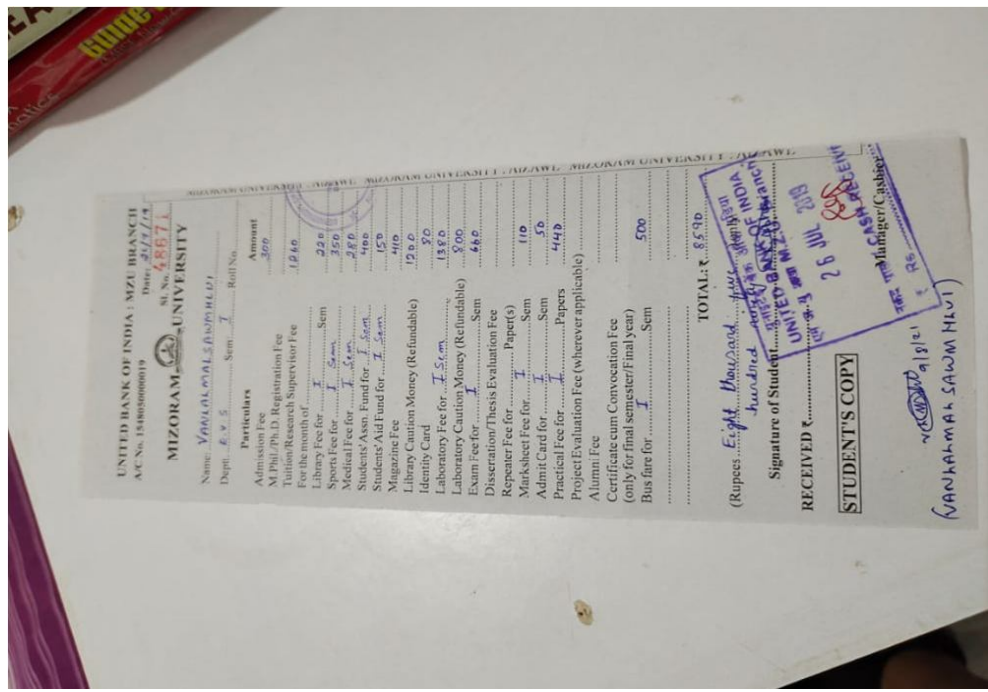 GUIDE
UNITED BANK OF INDIA : MZU BRANCH
A/C No. 1548050000019 Date: 25/7/19
Sl. No. 48671
MIZORAM UNIVERSITY
Name: VANLALMALSAWMHLUI
Deptt: E.V.S Sem. I Roll No.
Particulars Amount
Admission Fee 300
M.Phil./Ph.D. Registration Fee
Tuition/Research Supervisor Fee
For the month of 1260
Library Fee for I Sem 220
Sports Fee for I Sem 350
Medical Fee for I Sem 280
Students' Assn. Fund for I Sem 400
Students' Aid Fund for I Sem 150
Magazine Fee 410
Library Caution Money (Refundable) 1200
Identity Card 80
Laboratory Fee for I Sem 1380
Laboratory Caution Money (Refundable) 800
Exam Fee for I Sem 660
Dissertation/Thesis Evaluation Fee
Repeater Fee for Paper(s)
Marksheet Fee for I Sem 110
Admit Card for I Sem 50
Practical Fee for I Papers 440
Project Evaluation Fee (wherever applicable)
Alumni Fee
Certificate cum Convocation Fee
(only for final semester/Final year)
Bus fare for I Sem 500
TOTAL: ₹ 8590
(Rupees Eight thousand five
hundred only)
Signature of Student
RECEIVED ₹ Manager/Cashier
STUDENT'S COPY
UNITED BANK OF INDIA
26 JUL 2019
CASH RECEIV
RS
9/8/21
(VANLALMALSAWMHLUI)
MIZORAM UNIVERSITY : AIZAWL MIZORAM UNIVERSITY : AIZAWL MIZORAM UNIVERSITY : AIZAWL